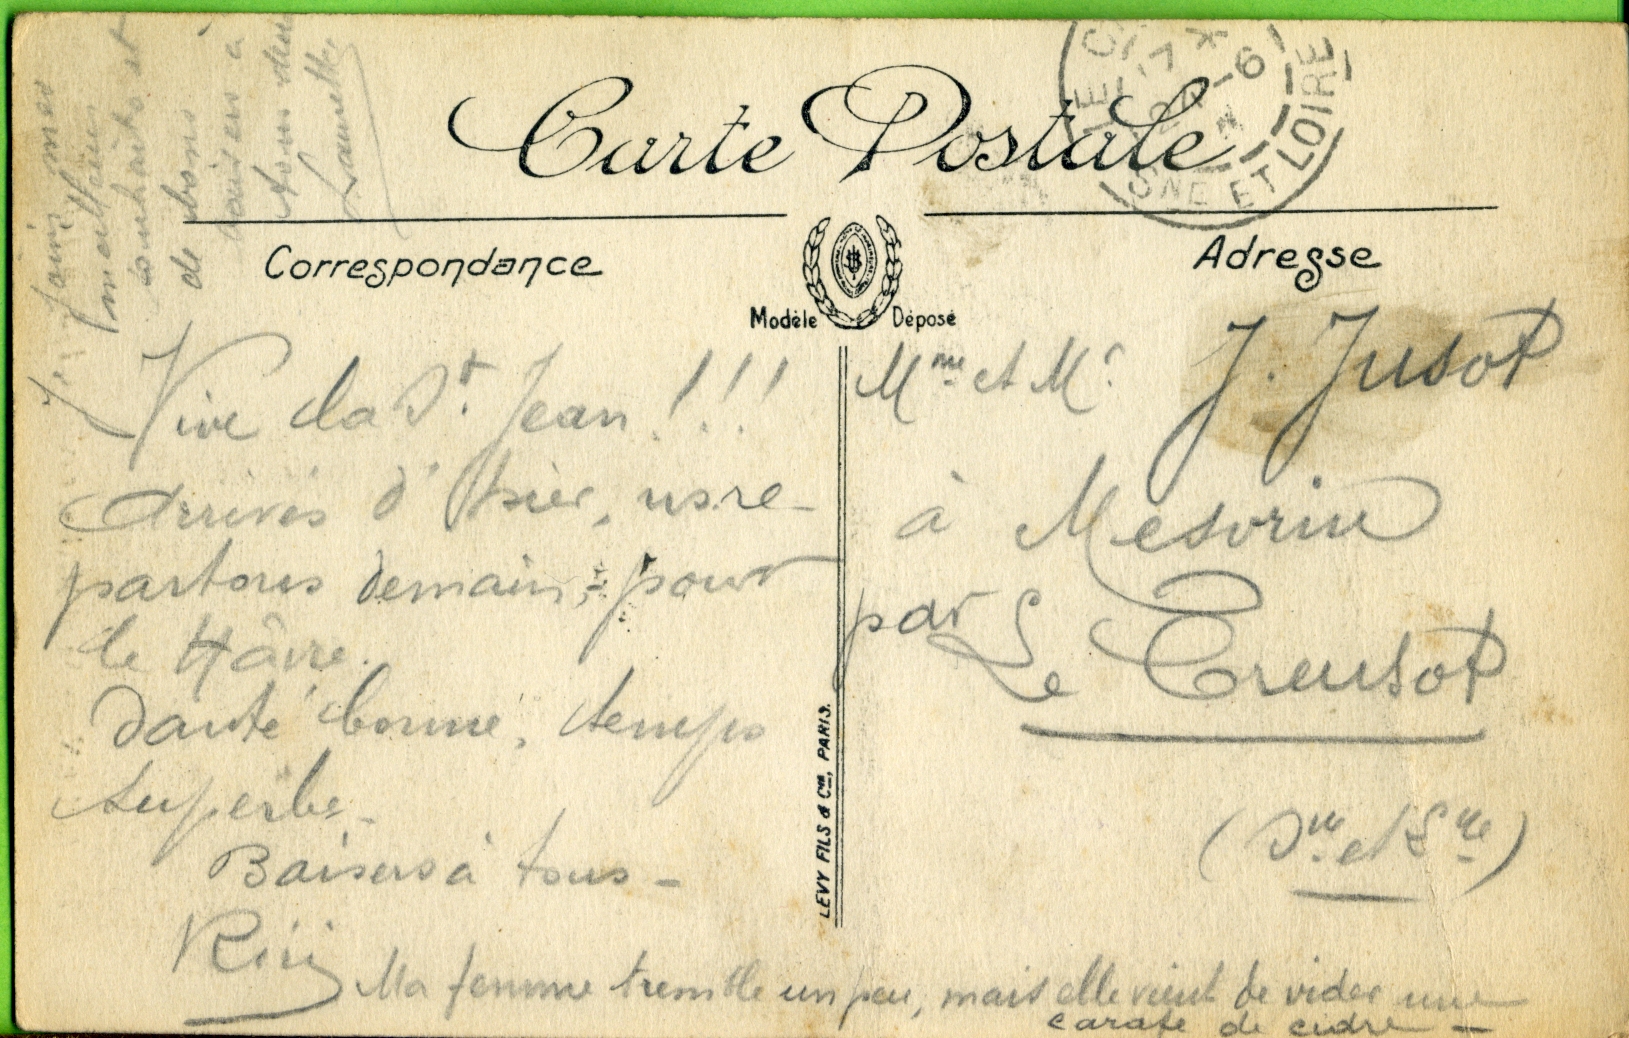 Carte Postale
Correspondance
Adresse
Modèle Déposé
LEVY FILS & Cie, PARIS.
NE ET LOIRE
Je joins mes
meilleurs
souhaits et
de bons
baisers à
tous deux
Vive la St. Jean !!!
Arrivés d'hier, ns re-
partons demain, pour
le Hâvre.
Santé bonne, temps
superbe.
Baisers à tous -
Riri
Ma femme tremble un peu, mais elle vient de vider une
carafe de cidre -
Mme et Mr J. Jusot
à Mesvrin
par Le Creusot
(Sne et Lre)